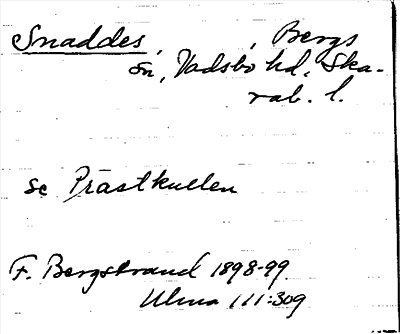 Snaddes, , Bergs
sn, Vadsbo hd, Ska-
rab. l.
se Prästkullen
F. Bergstrand 1898-99
Ulma 111:309